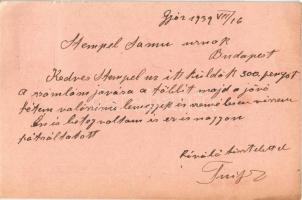 Győr 1939 VII/16
Stempel Samu urnak
Budapest
Kedves Stempel ur itt küldök 300 pengőt
a számlám javára a többit majd a jövő
héten valószinü lemegyek és remélem viszem
Én is beteg voltam és ez is nagyon
hátráltatott
Kiváló tisztelettel